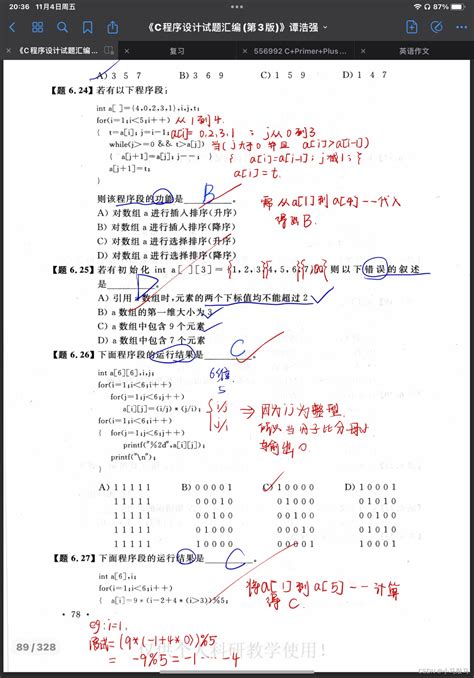 20:36 11月4日周五
《C程序设计试题汇编(第3版)》谭浩强
《C程序设计试题汇编...
复习
556992 C+Primer+Plus...
英语作文
A) 3 5 7 B) 3 6 9 C) 1 5 9 D) 1 4 7
【题 6.24】若有以下程序段:
int a[ ]={4,0,2,3,1},i,j,t;
for(i=1;i<5;i++) 从1到4.
{ t=a[i]; j=i-1; a[i]= 0,2,3,1 ; j从0到3
while(j>=0 && t>a[j]) 当(j大于0 并且 a[i]>a[i-1])
{ a[j+1]=a[j]; j--; } { a[i]=a[i-1]; j减1; }
a[j+1]=t; a[i]=t.
}
则该程序段的功能是 B 。
需从a[1]到a[4]一一代入
得出B.
A) 对数组 a 进行插入排序(升序)
B) 对数组 a 进行插入排序(降序)
C) 对数组 a 进行选择排序(升序)
D) 对数组 a 进行选择排序(降序)
【题 6.25】若有初始化 int a[ ][3]={1,2,3,4,5,6,7,00} 则以下错误的叙述
是 D 。
A) 引用 a 数组时,元素的两个下标值均不能超过 2
B) a 数组的第一维大小为 3
C) a 数组中包含 9 个元素
D) a 数组中包含 7 个元素
【题 6.26】下面程序段的运行结果是 C 。
int a[6][6],i,j;
for(i=1;i<6;i++)
for(j=1;j<6;j++)
a[i][j]=(i/j)*(j/i);
for(i=1;i<6;i++)
{ for(j=1;j<6;j++)
printf("%2d",a[i][j]);
printf("\n");
}
5
{ i/j
j/i
⇒ 因为i j为整型.
所以当分子比分母小时
输出0
A) 1 1 1 1 1 B) 0 0 0 0 1 C) 1 0 0 0 0 D) 1 0 0 0 1
1 1 1 1 1 0 0 0 1 0 0 1 0 0 0 0 1 0 1 0
1 1 1 1 1 0 0 1 0 0 0 0 1 0 0 0 0 1 0 0
1 1 1 1 1 0 1 0 0 0 0 0 0 1 0 0 1 0 1 0
1 1 1 1 1 1 0 0 0 0 0 0 0 0 1 1 0 0 0 1
【题 6.27】下面程序段的运行结果是 C 。
int a[6],i;
for(i=1;i<6;i++)
{ a[i]=9*(i-2+4*(i>3))%5;
将a[1]到a[5]一一计算
得C.
· 78 ·
例: i=1.
原式=(9*(-1+4*0))%5
= -9%5=-1 ··· -4
仅供个人科研教学使用!
89 / 328